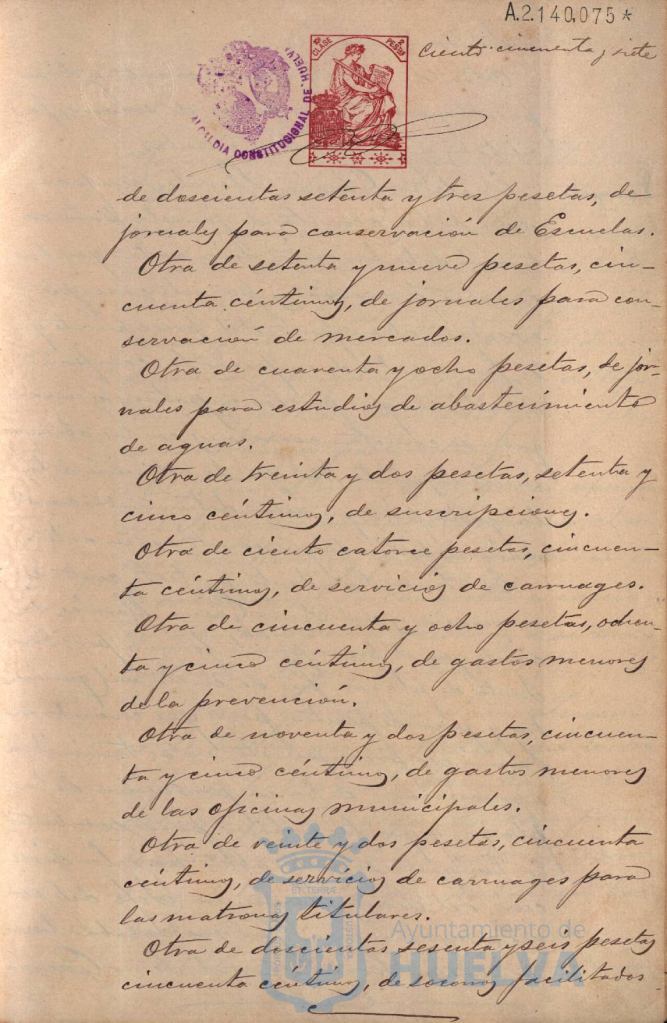 A.2.140.075*
Ciento cincuenta y siete
ALCALDIA CONSTITUCIONAL DE HUELVA
CLASE
PESETAS
de doscientas setenta y tres pesetas, de
jornales para conservación de Escuelas.
Otra de setenta y nueve pesetas, cin-
cuenta céntimos, de jornales para con-
servación de mercados.
Otra de cuarenta y ocho pesetas, de jor-
nales para estudios de abastecimiento
de aguas.
Otra de treinta y dos pesetas, setenta y
cinco céntimos, de suscripciones.
Otra de ciento catorce pesetas, cincuen-
ta céntimos, de servicios de carruages.
Otra de cincuenta y ocho pesetas, ochen-
ta y cinco céntimos, de gastos menores
de la prevención.
Otra de noventa y dos pesetas, cincuen-
ta y cinco céntimos, de gastos menores
de las oficinas municipales.
Otra de veinte y dos pesetas, cincuenta
céntimos, de servicios de carruages para
las matronas titulares.
Otra de doscientas sesenta y seis pesetas
cincuenta céntimos, de socorros facilitados
Ayuntamiento de
HUELVA